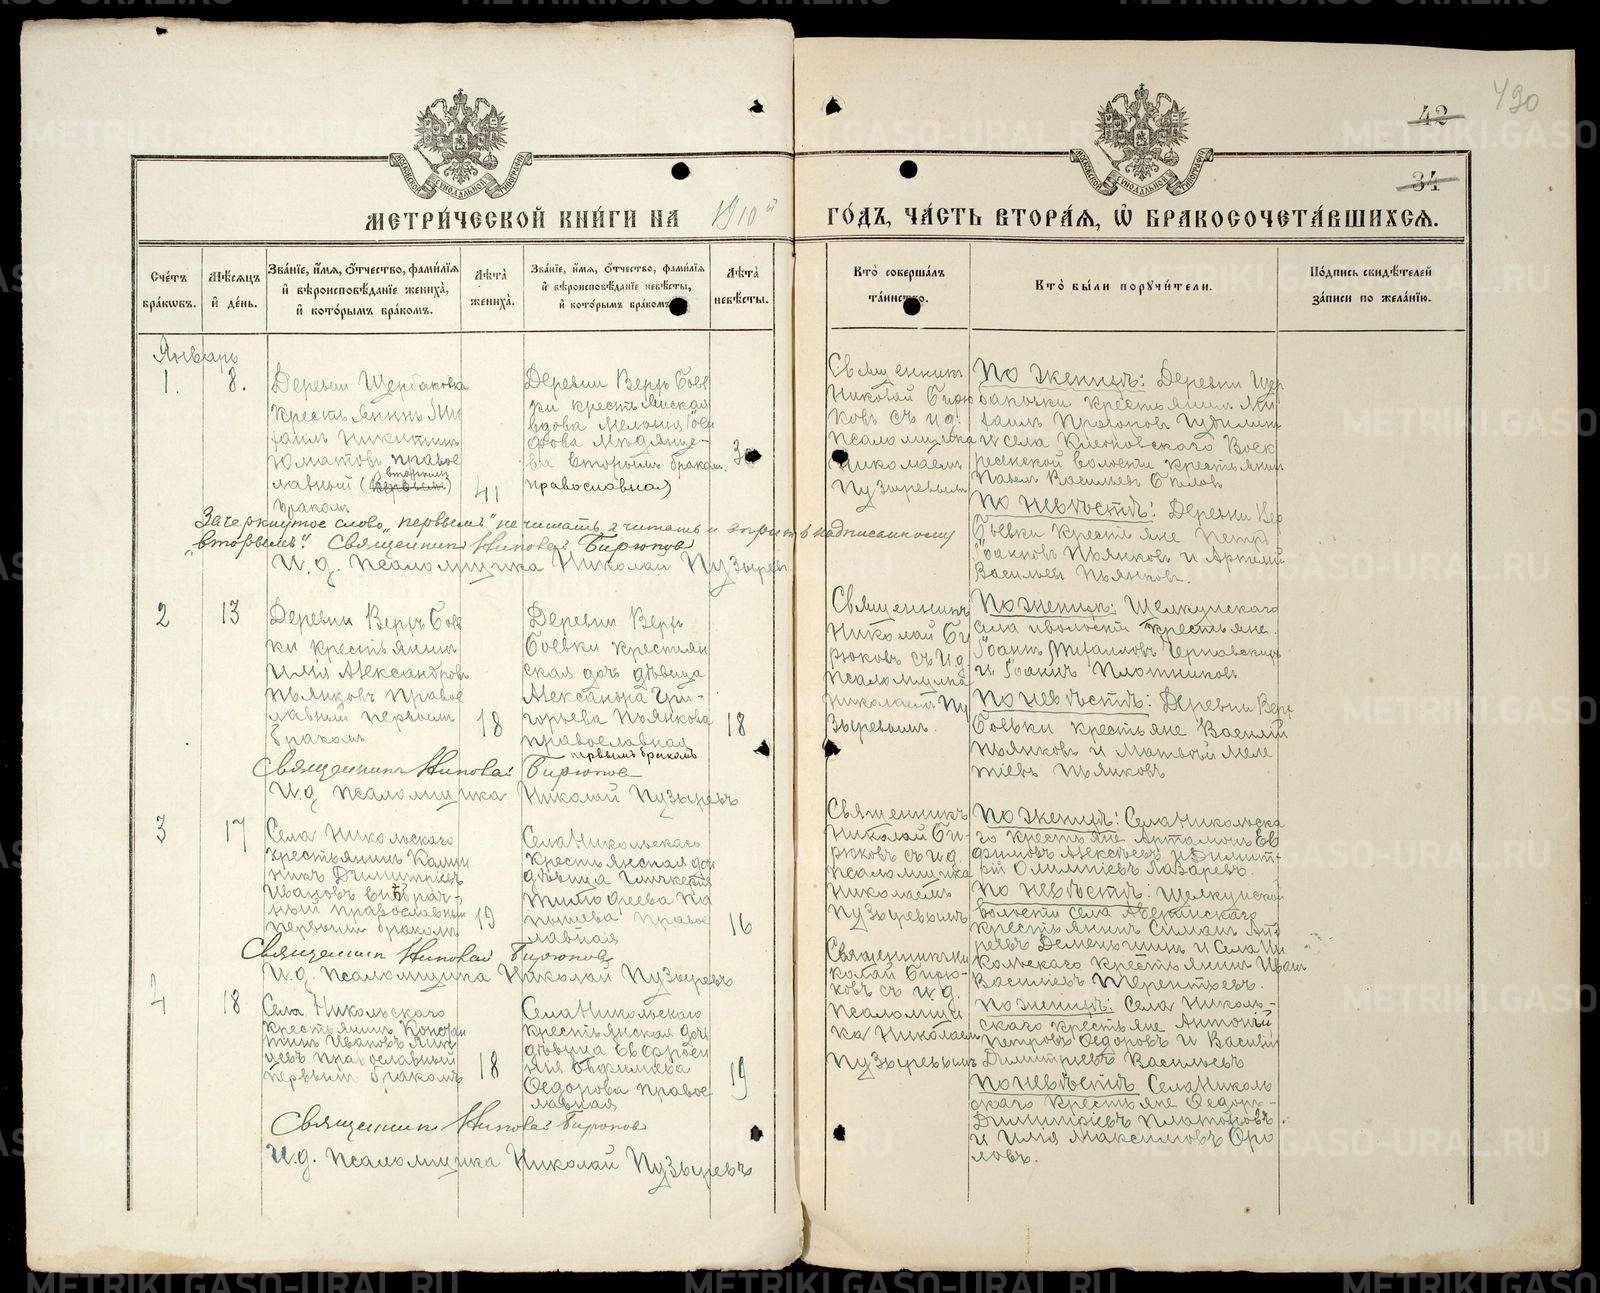 490
42
34
МЕТРИ́ЧЕСКОЙ КНИ́ГИ НА 1910й ГО́ДЪ, ЧА́СТЬ ВТОРА́Я, Ѿ БРАКОСОЧЕТА́ВШИХСЯ.
Сче́тъ
бра́кѡвъ.
Мѣ́сяцъ
и҆ де́нь.
Зва́нїе, и҆́мя, ѻ҆́тчество, фами́лїя
и҆ вѣроисповѣ́данїе жениха̀,
и҆ кото́рымъ бра́комъ.
Лѣта̀
жениха̀.
Зва́нїе, и҆́мя, ѻ҆́тчество, фами́лїя
и҆ вѣроисповѣ́данїе невѣ́сты,
и҆ кото́рымъ бра́комъ.
Лѣта̀
невѣ́сты.
Кто̀ соверша́лъ
та́инство.
Кто̀ бы́ли поручи́тели.
По́дпись свидѣ́телей
за́писи по жела́нїю.
Январь
1.
8.
Деревни Щербакова
крестьянинъ Ми
хаилъ Никитинъ
Юматовъ правос
вторымъ
лавный (первымъ)
бракомъ
41
Деревни Верхъ Боев
ки крестьянская
вдова Мелания
Медянце-
ва вторымъ бракам.
православная)
Священникъ
Николай Бирю
ковъ съ и.д.
псаломщика
Николаемъ
Пузыревымъ
По женихѣ: Деревни Щер
баковки крестьянинъ Ми
хаилъ
и села Клеповскаго Воск
ресенской волости крестьянин
Павелъ Васильевъ
По невѣстѣ: Деревни Вер
Боевки крестьяне Петръ
Іоанновъ Пьянковъ и
Васильевъ Пьянковъ.
Зачеркнутое слово "первымъ" не читать, а читать надписанному
"вторымъ". Священникъ Николай Бирюковъ
И.д. псаломщика Николай Пузырев
2
13
Деревни Верхъ Боев
ки крестьянинъ
Илія Александровъ
Пьянковъ правос
лавный первым
бракомъ
18
Деревни Верхъ
Боевки крестьян
ская дочь дѣвица
Александра Гри-
горьева Пьянкова
православная
первымъ бракомъ
18
Священникъ
Николай Би
рюковъ съ и.д.
псаломщика
Николаемъ Пу
зыревымъ
По женихѣ: Щелкунскаго
села и волости крестьяне
Іоаннъ Михаиловъ Чернавскихъ
и Іоаннъ Плотниковъ
По невѣстѣ: Деревни Верх
Боевки крестьяне Василій
Пьянковъ и Матвѣй Меле
тіевъ Пьянковъ
Священникъ Николай Бирюков
И.д. псаломщика Николай Пузыревъ
3
17
Села Никольскаго
крестьянинъ Калин
никъ Димитріевъ
Ивановъ внѣбрач-
ный православный
первымъ бракомъ
19
Села Никольскаго
крестьянская доч
дѣвица Гликерія
Тимофеева Па
правос
лавная
16
Священникъ
Николай Би-
рюковъ съ и.д.
псаломщика
Николаемъ
Пузыревымъ
По женихѣ: Села Никольска
го крестьяне Артамонъ Ев
фимовъ Алексѣевъ и Димит-
рій Лазаревъ.
По невѣстѣ: Щелкунской
волости села Аверинскаго
крестьянинъ Симанъ Анд
реевъ Деменьшинъ и Села Ни
кольскаго крестьянин Иван
Васильевъ Терентьевъ.
Священникъ Николай Бирюков
И.д. псаломщика Николай Пузыревъ
4
18
Села Никольскаго
крестьянинъ Констан
тинъ Ивановъ
православный
первымъ бракомъ
18
Села Никольскаго
крестьянская дочь
дѣвица Евфросин
нія Евфимиева
Ѳедорова правос
лавная
19
Священникъ Ни
колай Бирю-
ковъ съ и.д.
псаломщи
ка Николаем
Пузыревымъ
По женихѣ: Села Николь-
скаго крестьяне Антоній
Петровъ Ѳедоровъ и Василій
Димитріевъ Васильевъ
По невѣстѣ Села Николь
скаго крестьяне Ѳедоръ
Димитріевъ Платоновъ
и Илія Максимовъ Оро
ловъ.
Священник Николай Бирюков
И.д. псаломщика Николай Пузыревъ
METRIKI.GASO-URAL.RU